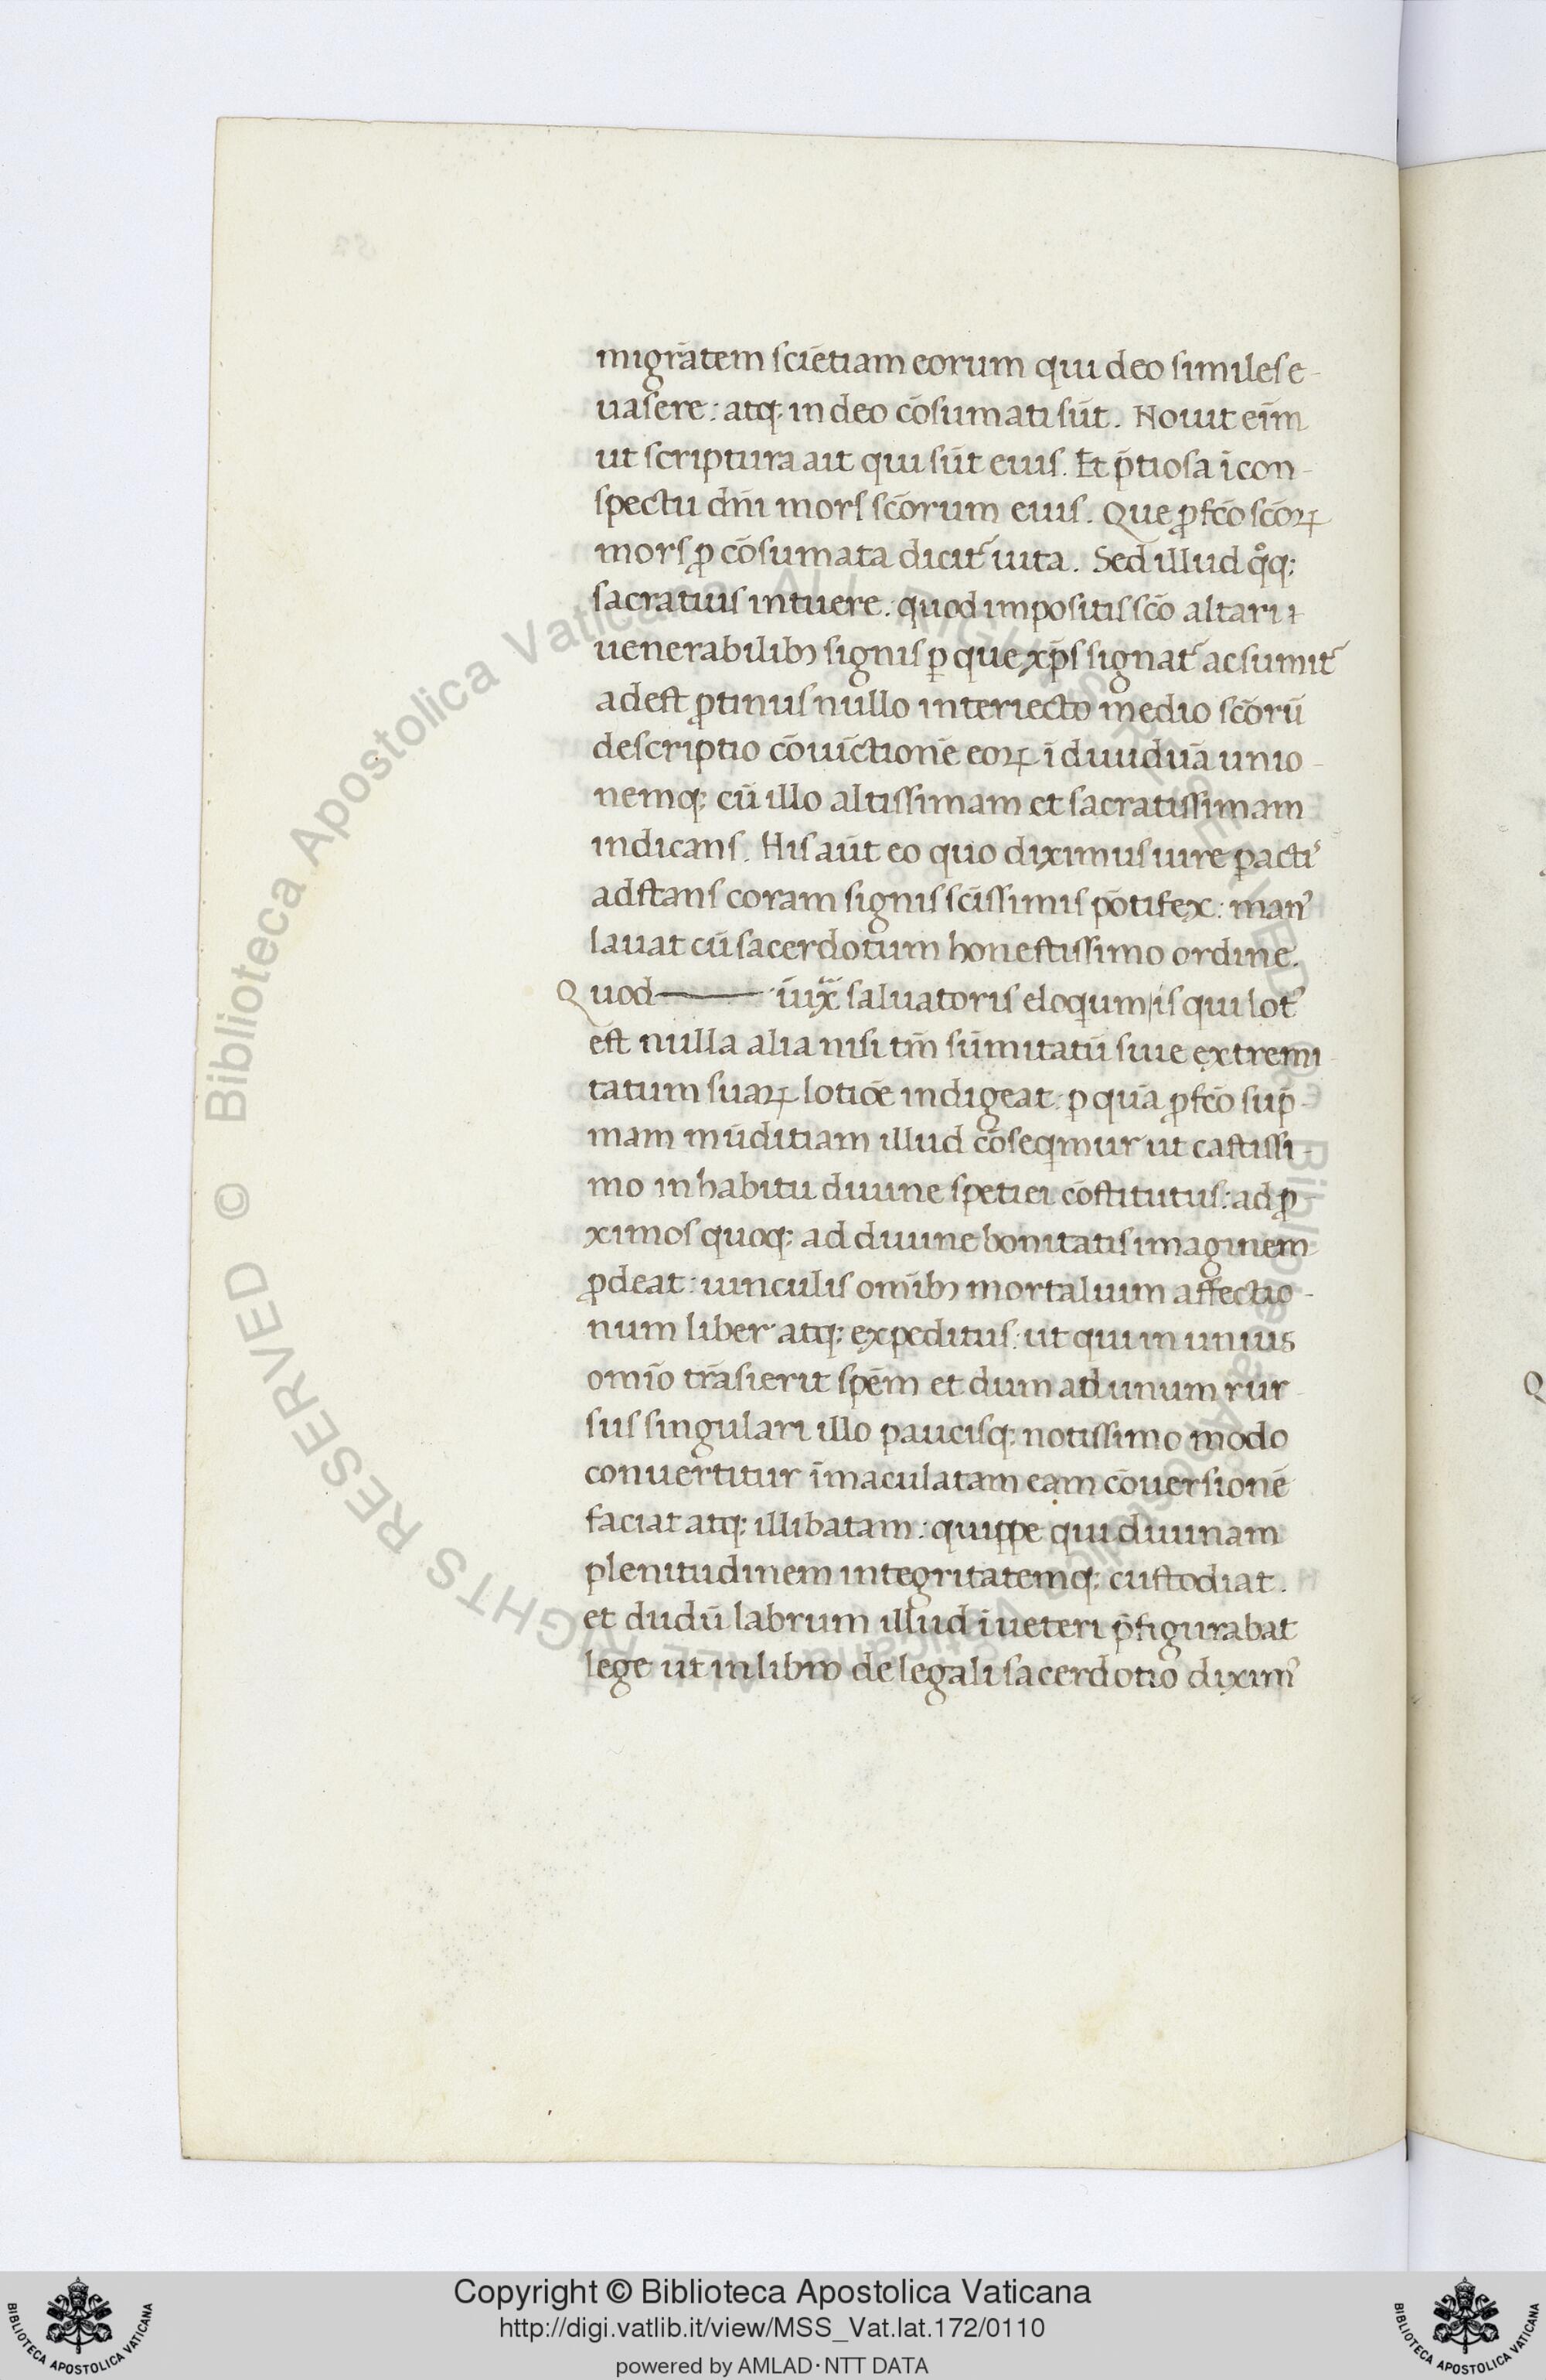 migrātem sciētiam eorum qui deo similes e-
uasere: atq; in deo cōsumati sūt. Nouit eīm
ut scriptura ait qui sūt eius. Et p̄tiosa ī con-
spectu dn̄i mors scōrum eius. Que ꝓfcō scōꝝ
mors ꝓ cōsumata dicit᷑ uita. Sed illud qͦq;
sacratius intuere: quod impositis scō altari
uenerabilibꝫ signis ꝑ que xp̄s signat᷑ ac sumit᷑
adest ꝓtinus nullo interiecto medio scōrū
descriptio cōuīctionē eoꝝ īdiuiduā unio-
nemq; cū illo altissimam et sacratissimam
indicans. His aūt eo quo diximus iure ꝑactꝰ
adstans coram signis scīssimis pōtifex: manꝰ
lauat cū sacerdotum honestissimo ordine.
Quod iuxͣ saluatoris eloqium is qui lotꝰ
est nulla alia nisi tm̄ sūmitatū siue extremi-
tatum suaꝝ lotiōe indigeat: ꝑ quā ꝓfcō sup̄-
mam mūditiam illud cōseqimur ut castissi-
mo in habitu diuine spetiei cōstitutus: ad ꝓ
ximos quoq; ad diuine bonitatis imaginem
ꝓdeat: uinculis omībꝫ mortalium affectio-
num liber atq; expeditus: ut qui in unius
omīo trāsierit spēm et dum ad unum rur-
sus singulari illo paucisq; notissimo modo
conuertitur īmaculatam eam cōuersionē
faciat atq; illibatam: quippe qui diuinam
plenitudinem integritatemq; custodiat.
et dudū labrum illud ī ueteri p̄figurabat
lege ut in libro de legali sacerdotio diximꝰ
Copyright © Biblioteca Apostolica Vaticana
http://digi.vatlib.it/view/MSS_Vat.lat.172/0110
powered by AMLAD·NTT DATA
BIBLIOTECA APOSTOLICA VATICANA
BIBLIOTECA APOSTOLICA VATICANA